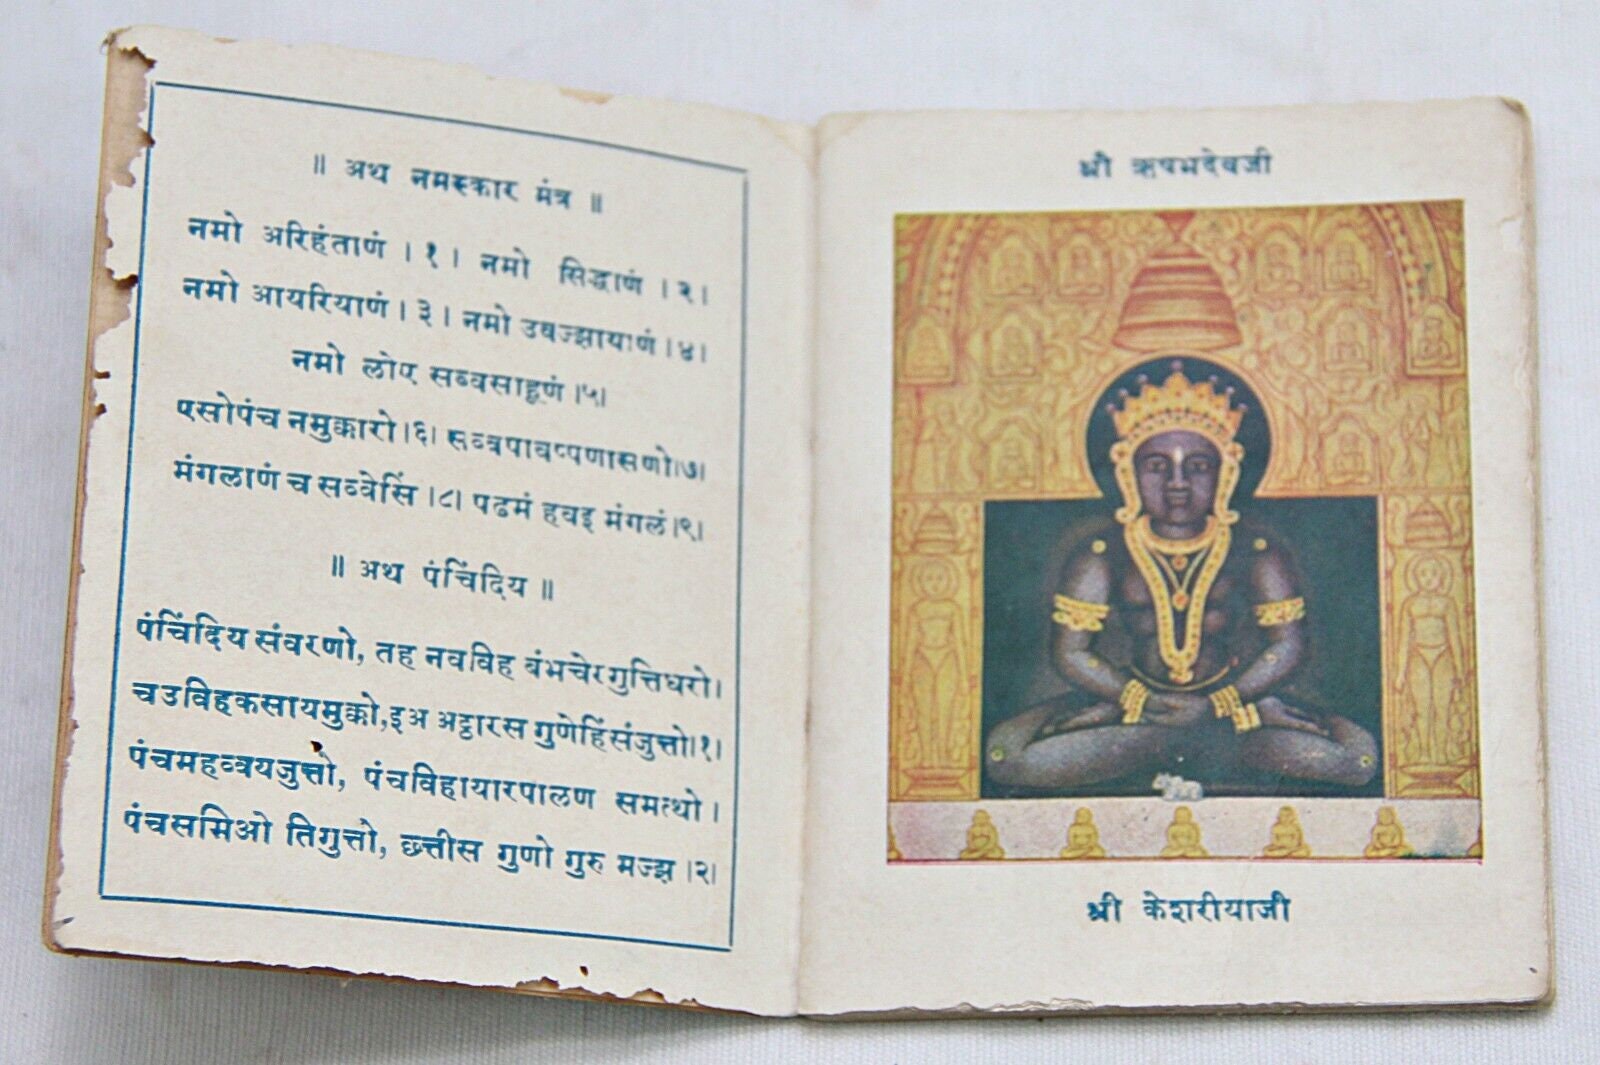 ॥ अथ नमस्कार मंत्र ॥
नमो अरिहंताणं । १ । नमो सिद्धाणं । २ ।
नमो आयरियाणं । ३ । नमो उवज्झायाणं । ४ ।
नमो लोए सव्वसाहूणं ।५।
एसोपंच नमुक्कारो ।६। सव्वपावप्पणासणो।७।
मंगलाणं च सव्वेसिं ।८। पढमं हवइ मंगलं।९।
॥ अथ पंचिंदिय ॥
पंचिंदिय संवरणो, तह नवविह बंभचेरगुत्तिधरो।
चउविहकसायमुक्को,इअ अट्ठारस गुणेहिंसंजुत्तो।१।
पंचमहव्वयजुत्तो, पंचविहायारपालण समत्थो ।
पंचसमिओ तिगुत्तो, छत्तीस गुणो गुरु मज्झ ।२।
श्री ऋषभदेवजी
श्री केशरीयाजी